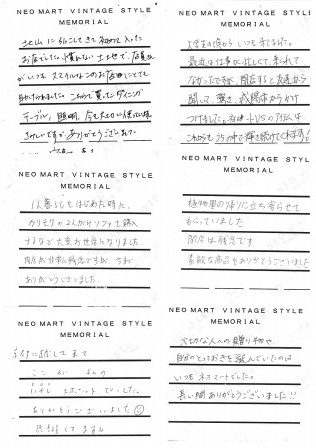 NEO MART VINTAGE STYLE
MEMORIAL
北山に引こしてきて初めて入った
お店でした。慣れない土地で、店員さん
がいつも スマイルなこのお店
テーブル、照明、今も大切に使っています。
さみしいですがありがとうございました
NEO MART VINTAGE STYLE
MEMORIAL
大学生の頃から いつも来てました。
最近は仕事が忙しくて、来られて
なかったですが、閉店すると友達から
聞いて、驚き、
つけました。
これからも
NEO MART VINTAGE STYLE
MEMORIAL
1人暮らしをはじめた時に、
カリモクの2人がけソファを購入
するなど大変お世話になりました。
閉店が非常に残念ですが、今まで
ありがとうございました。
植物園の帰りに立ち寄らせて
もらっていました
閉店は残念です
素敵な商品をありがとうございました
NEO MART VINTAGE STYLE
MEMORIAL
京都に越して来て
ここが
スポットでした。
ありがとうございました
NEO MART VINTAGE STYLE
MEMORIAL
大切な人への贈り物や
自分のとっておきを選んでいたのは
いつもネオマートでした。
長い間ありがとうございました!!